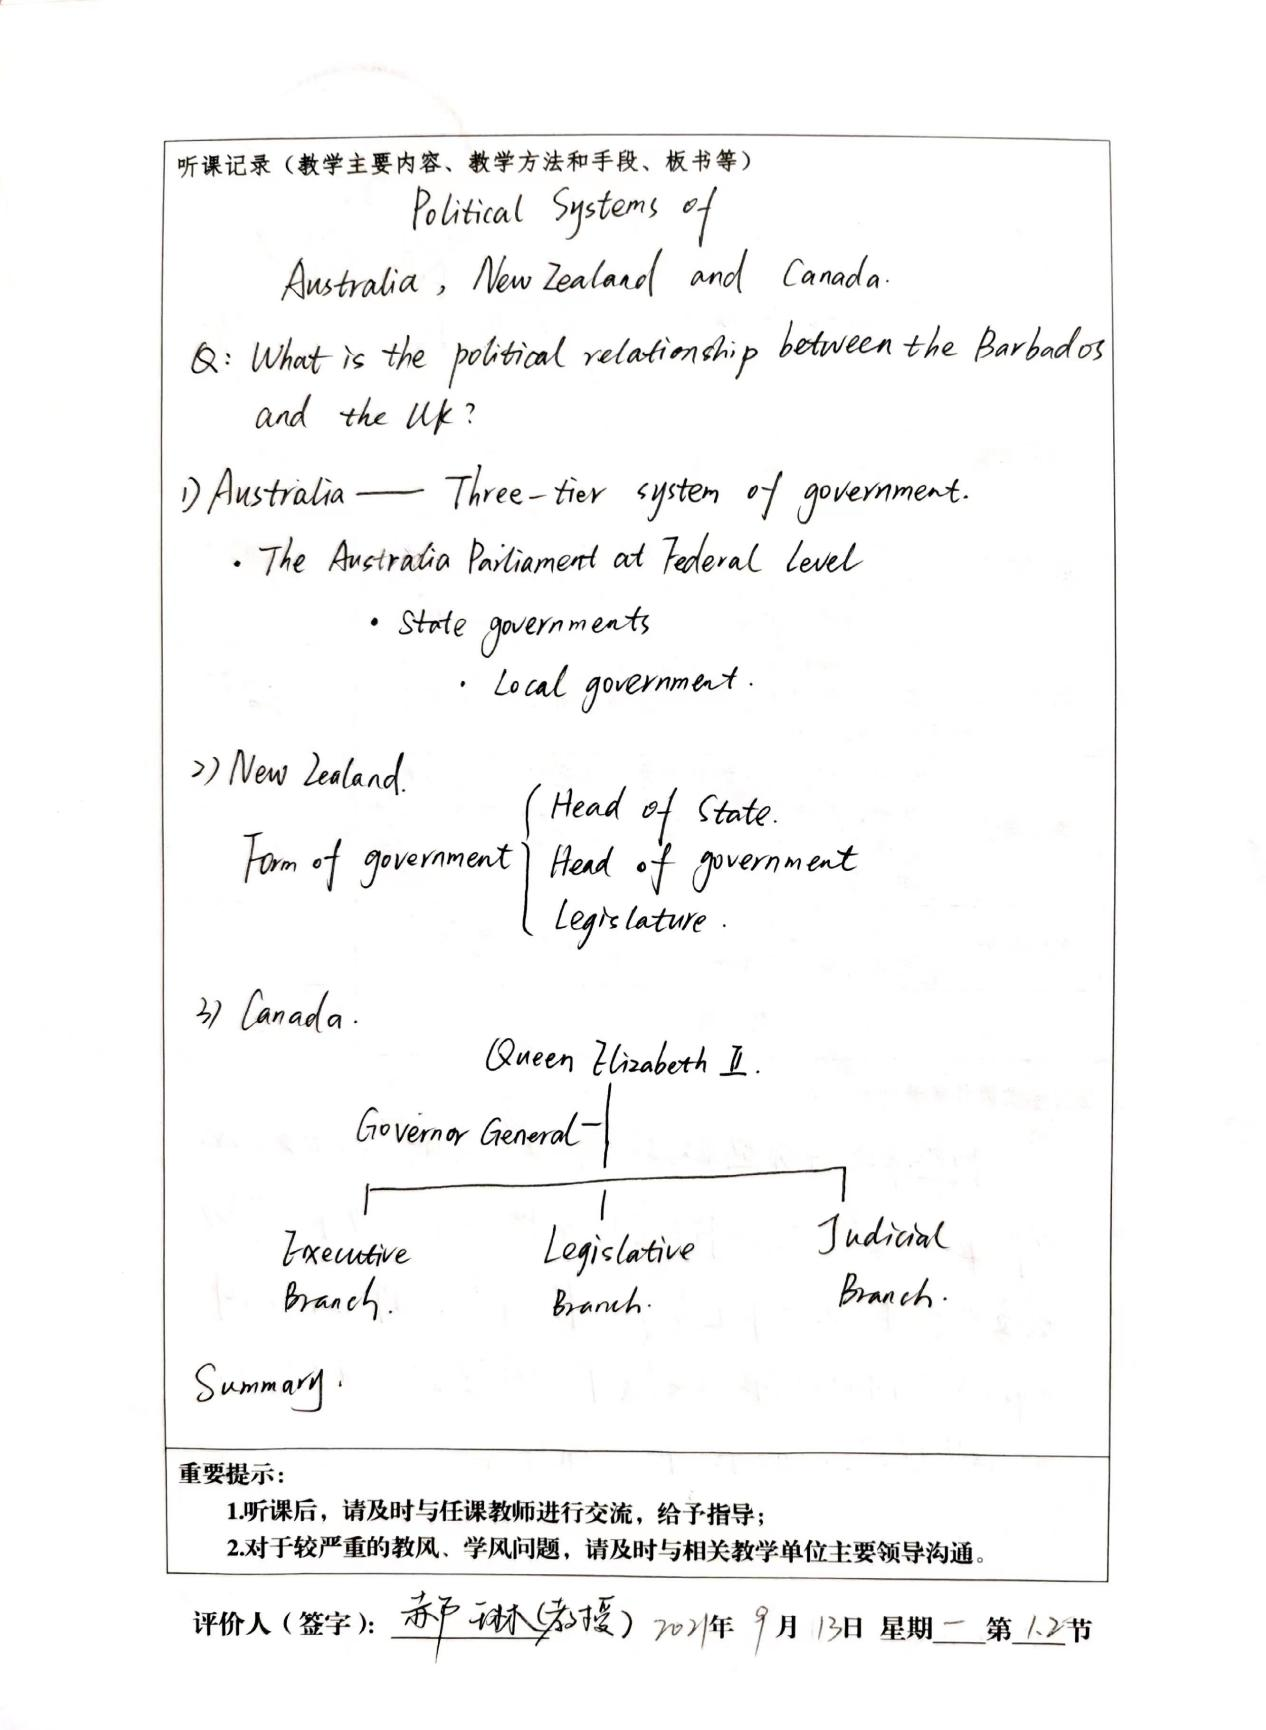 听课记录（教学主要内容、教学方法和手段、板书等）
Political Systems of
Australia, New Zealand and Canada.
Q: What is the political relationship between the Barbados
and the UK?
1) Australia —— Three-tier system of government.
· The Australia Parliament at Federal Level
· State governments
· Local government.
2) New Zealand.
Form of government { Head of State.
Head of government
Legislature.
3) Canada.
Queen Elizabeth II.
Governor General
Executive Branch.
Legislative Branch.
Judicial Branch.
Summary.
重要提示：
1.听课后，请及时与任课教师进行交流，给予指导；
2.对于较严重的教风、学风问题，请及时与相关教学单位主要领导沟通。
评价人（签字）： 郝琳（教授） 2021年 9月 13日 星期一 第1.2节